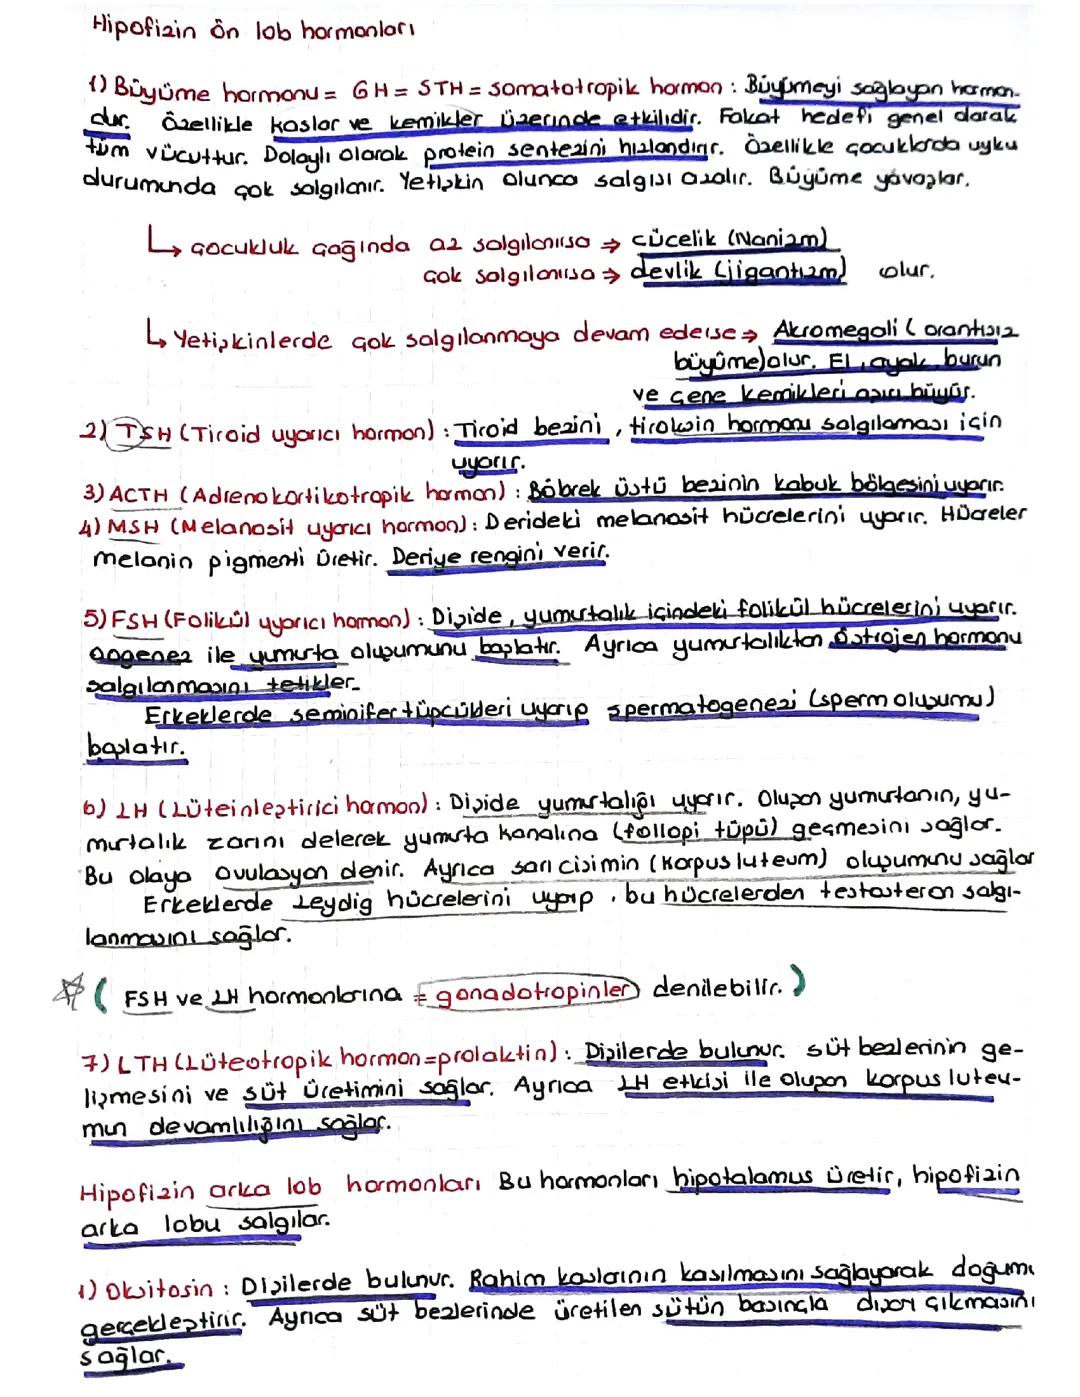 Hipofizin ön lob hormonları
1) Büyüme hormonu = GH = STH = somatotropik hormon : Büyümeyi sağlayan hormon-
dur. Özellikle kaslar ve kemikler üzerinde etkilidir. Fakat hedefi genel olarak
tüm vücuttur. Dolaylı olarak protein sentezini hızlandırır. Özellikle çocuklarda uyku
durumunda çok salgılanır. Yetişkin olunca salgısı azalır. Büyüme yavaşlar.
↳ çocukluk çağında az salgılanırsa ⇒ cücelik (Nanizm)
çok salgılanırsa ⇒ devlik (jigantizm) olur.
↳ Yetişkinlerde çok salgılanmaya devam ederse ⇒ Akromegali (orantısız
büyüme) olur. El, ayak, burun
ve çene kemikleri aşırı büyür.
2) TSH (Tiroid uyarıcı hormon) : Tiroid bezini, tiroksin hormonu salgılaması için
uyarır.
3) ACTH (Adrenokortikotropik hormon) : Böbrek üstü bezinin kabuk bölgesini uyarır.
4) MSH (Melanosit uyarıcı hormon) : Derideki melanosit hücrelerini uyarır. Hücreler
melanin pigmenti üretir. Deriye rengini verir.
5) FSH (Folikül uyarıcı hormon) : Dişide, yumurtalık içindeki folikül hücrelerini uyarır.
oogenez ile yumurta oluşumunu başlatır. Ayrıca yumurtalıktan östrojen hormonu
salgılanmasını tetikler.
Erkeklerde seminifer tüpcükleri uyarıp spermatogenezi (sperm oluşumu)
başlatır.
6) LH (Lüteinleştirici hormon) : Dişide yumurtalığı uyarır. Oluşan yumurtanın, yu-
murtalık zarını delerek yumurta kanalına (follopi tüpü) geçmesini sağlar.
Bu olaya ovulasyon denir. Ayrıca sarı cisimin (korpus luteum) oluşumunu sağlar
Erkeklerde Leydig hücrelerini uyarıp, bu hücrelerden testosteron salgı-
lanmasını sağlar.
☆ ( FSH ve LH hormonlarına = gonadotropinler denilebilir. )
7) LTH (Lüteotropik hormon=prolaktin) : Dişilerde bulunur. süt bezlerinin ge-
lişmesini ve süt üretimini sağlar. Ayrıca LH etkisi ile oluşan korpus luteu-
mun devamlılığını sağlar.
Hipofizin arka lob hormonları Bu hormonları hipotalamus üretir, hipofizin
arka lobu salgılar.
1) Oksitosin : Dişilerde bulunur. Rahim kaslarının kasılmasını sağlayarak doğumu
gerçekleştirir. Ayrıca süt bezlerinde üretilen sütün basınçla dışarı çıkmasını
sağlar.